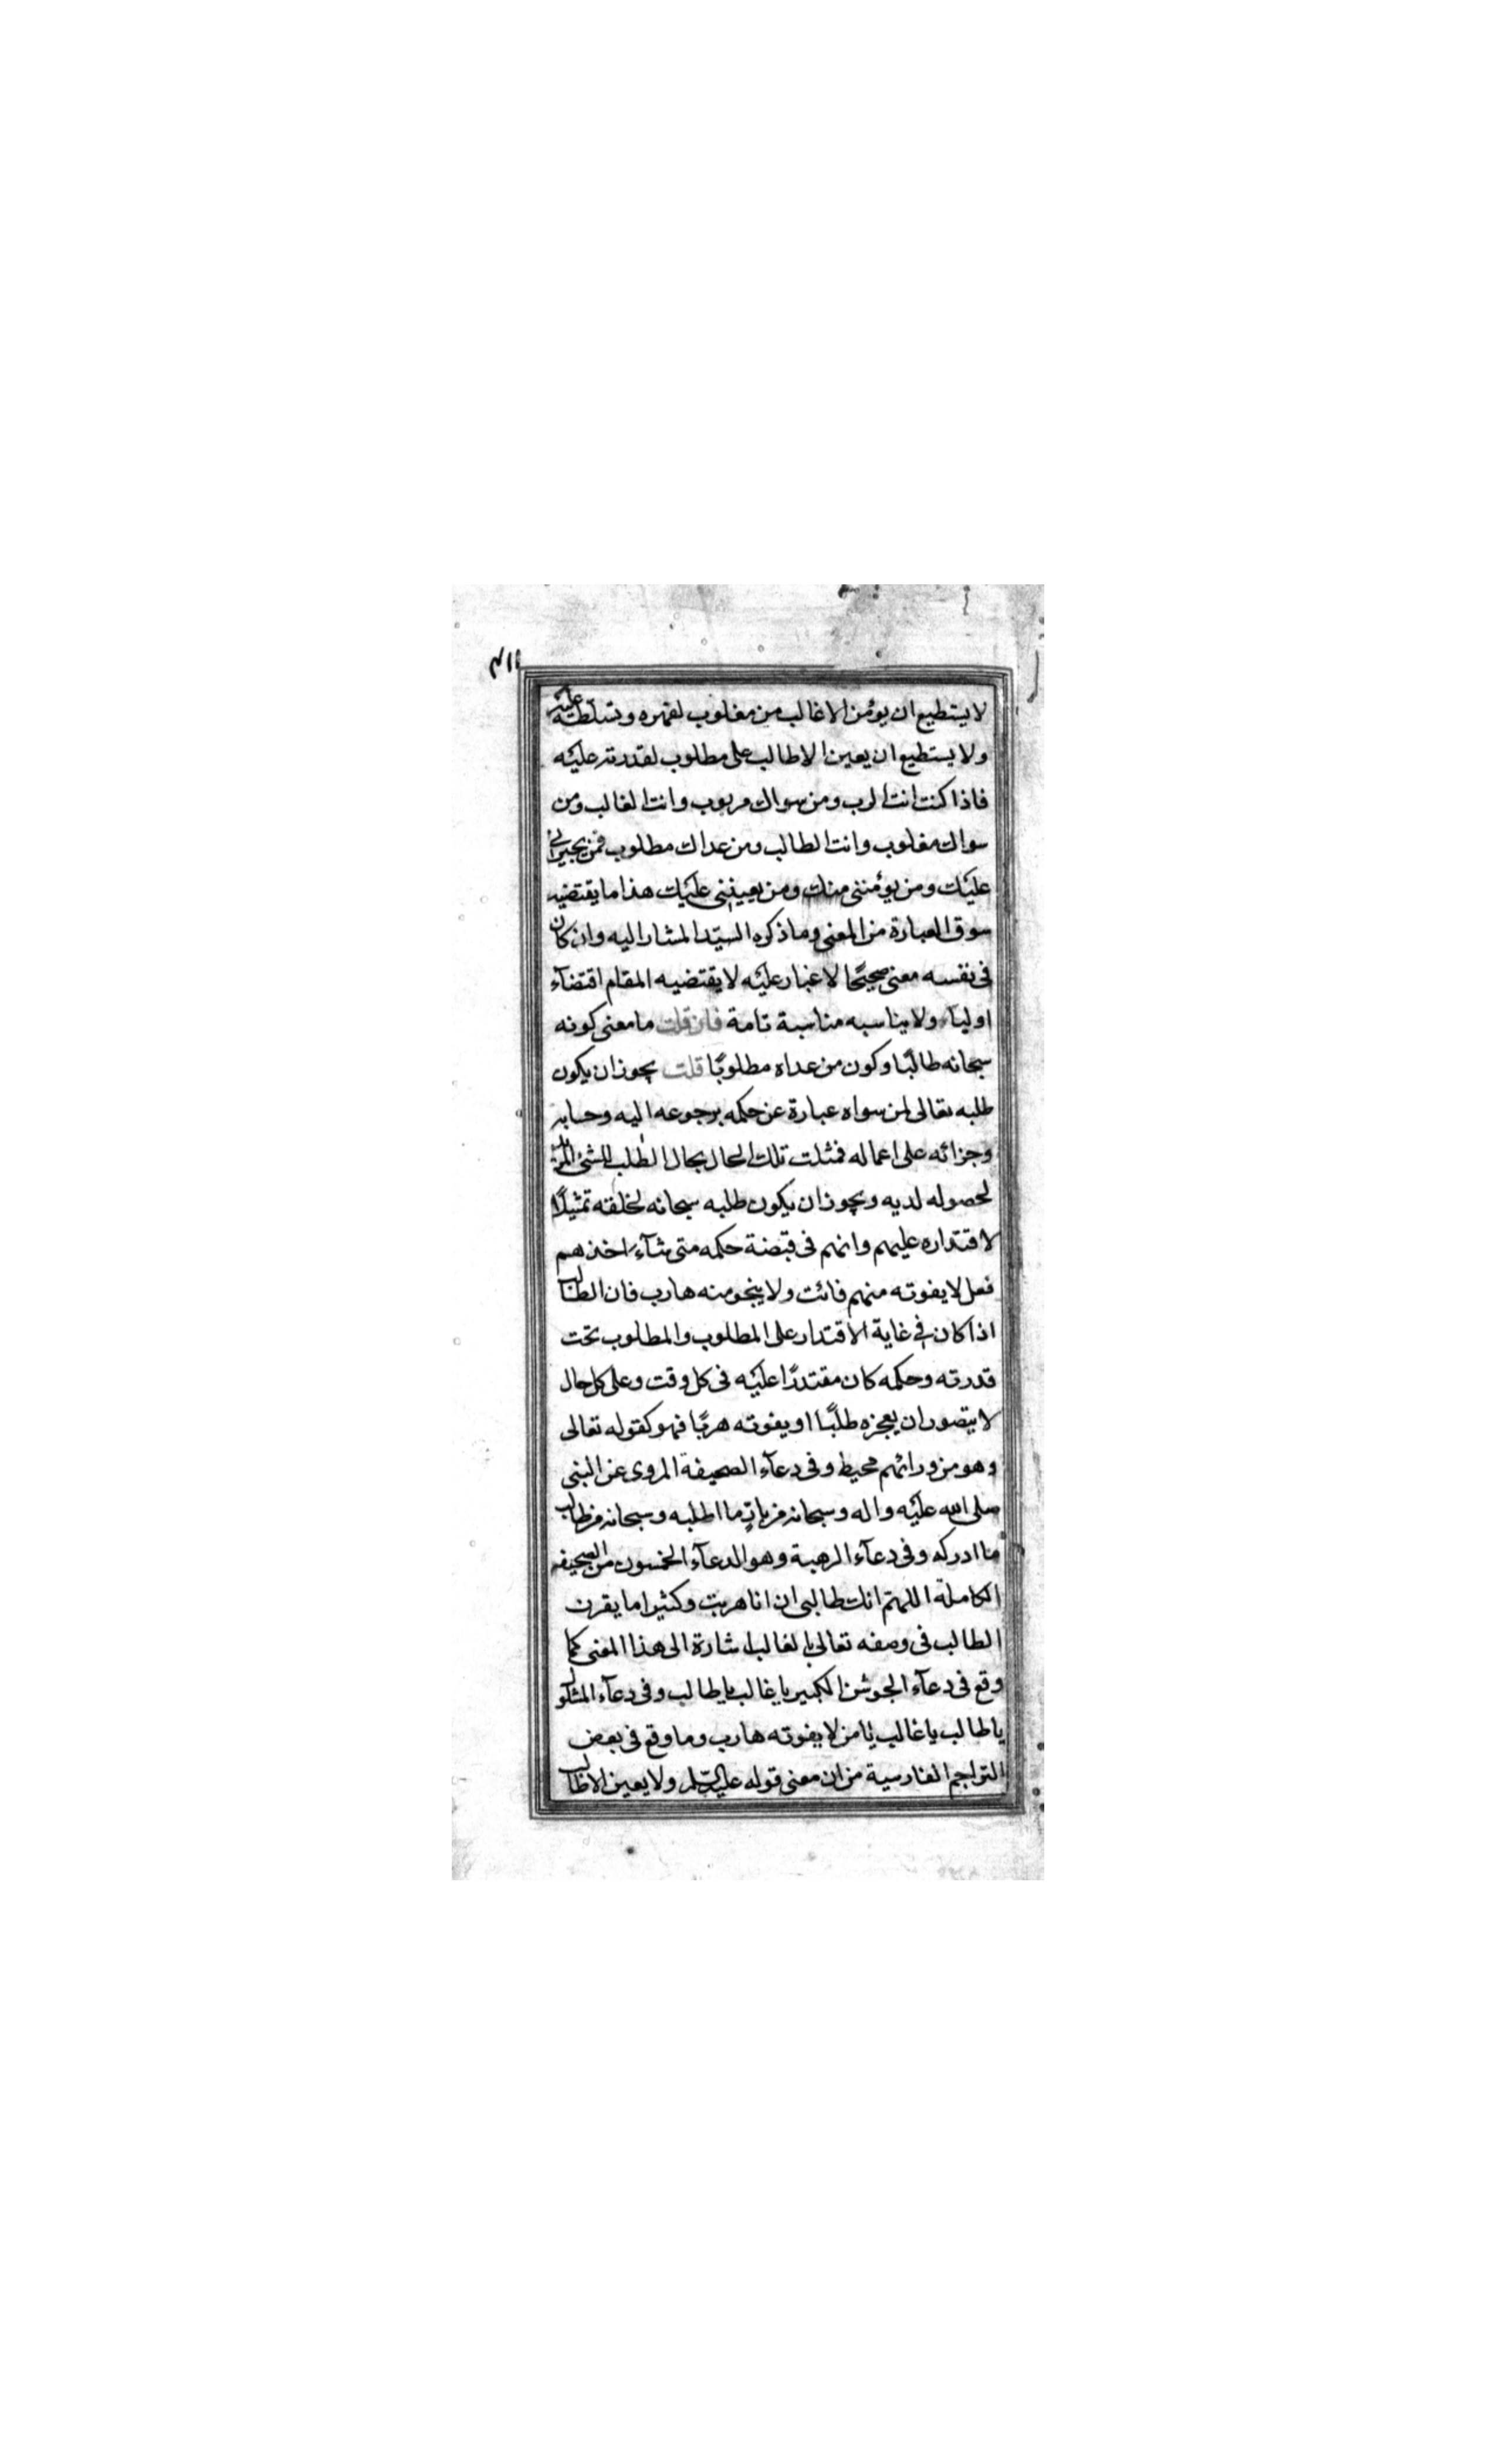 ٣١١
لا يستطيع ان يؤمن الا غالب من مغلوب لقهره وتسلطه عليه
ولا يستطيع ان يعين الا طالب على مطلوب لقدرته عليه
فاذا كنت انت الرب ومن سواك مربوب وانت الغالب ومن
سواك مغلوب وانت الطالب ومن عداك مطلوب فمن يجيرني
عليك ومن يؤمنني منك ومن يعينني عليك هذا ما يقتضيه
سوق العبارة من المعنى وما ذكره السيّد المشار اليه وان كان
فى نفسه معنى صحيحًا لا غبار عليه لا يقتضيه المقام اقتضآء
اوليا ولا يناسبه مناسبة تامة فان قلت ما معنى كونه
سبحانه طالبًا وكون من عداه مطلوبًا قلت يجوز ان يكون
طلبه تعالى لمن سواه عبارة عن حكمه برجوعه اليه وحسابه
وجزائه على اعماله فمثلت تلك الحال بحال الطلب للشئ
لحصوله لديه ويجوز ان يكون طلبه سبحانه لخلقه تمثيلًا
لاقتداره عليهم وانهم فى قبضة حكمه متى شآء اخذهم
فعل لا يفوته منهم فائت ولا ينجو منه هارب فان الطالب
اذا كان فى غاية الاقتدار على المطلوب والمطلوب تحت
قدرته وحكمه كان مقتدرًا عليه فى كل وقت وعلى كل حال
لا يتصور ان يعجزه طلبًا او يفوته هربًا فهو كقوله تعالى
وهو من ورائهم محيط وفى دعآء الصحيفة المروى عن النبى
صلى الله عليه واله وسبحانه من بادٍ ما اطلبه وسبحانه من طالب
ما ادركه وفى دعآء الرهبة وهو الدعآء الخمسون من الصحيفه
الكاملة اللهم انك طالبى ان انا هربت وكثيرا ما يقرن
الطالب فى وصفه تعالى بالغالب اشارة الى هذا المعنى كما
وقع فى دعآء الجوشن الكبير يا غالب يا طالب وفى دعآء المشلول
يا طالب يا غالب يا من لا يفوته هارب وما وقع فى بعض
التراجم الفارسية من ان معنى قوله عليه السلم ولا يعين الا طالب